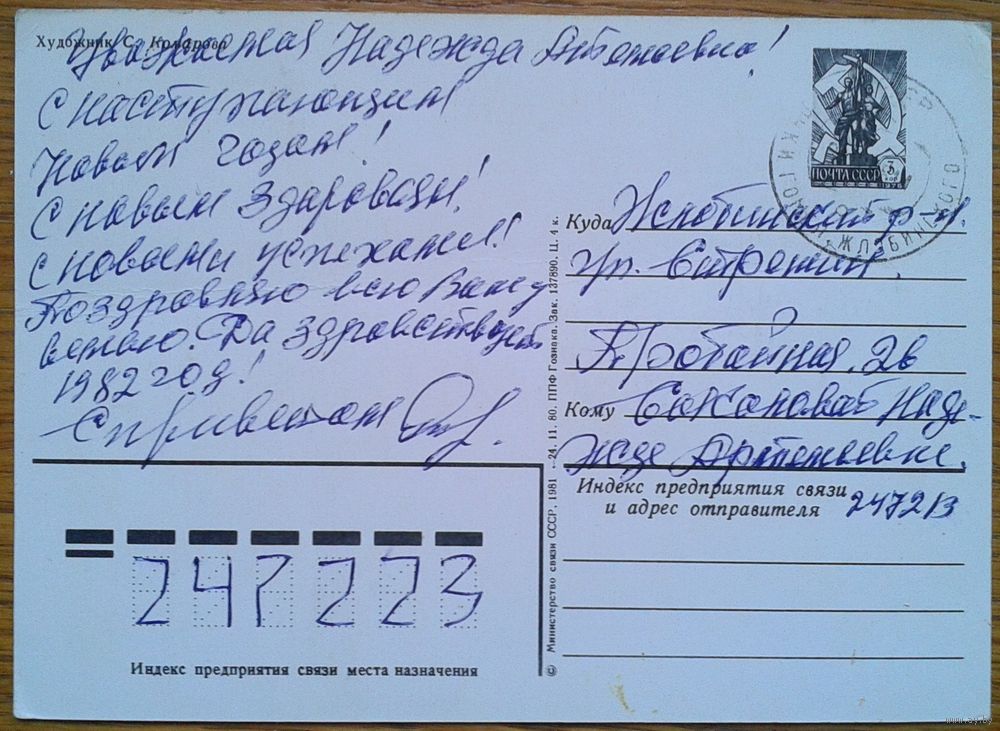 Художник С. Комарова
Уважаемая Надежда Артемьевна!
С наступающим
Новым годом!
С новым здоровьем!
С новыми успехами!
Поздравляю всю Вашу
Да здравствует
1982 год!
С приветом
ПОЧТА СССР
3 коп
1976
ЖЛОБИНСКОГО
Куда Жлобинский р-н.
гр. Стрешин.
26
Кому Надежде Артемьевне.
Индекс предприятия связи
и адрес отправителя 247213
247223
Индекс предприятия связи места назначения
© Министерство связи СССР, 1981 24. 11. 80. ППФ Гознака. Зак. 137890. Ц. 4 к.
www.ay.by